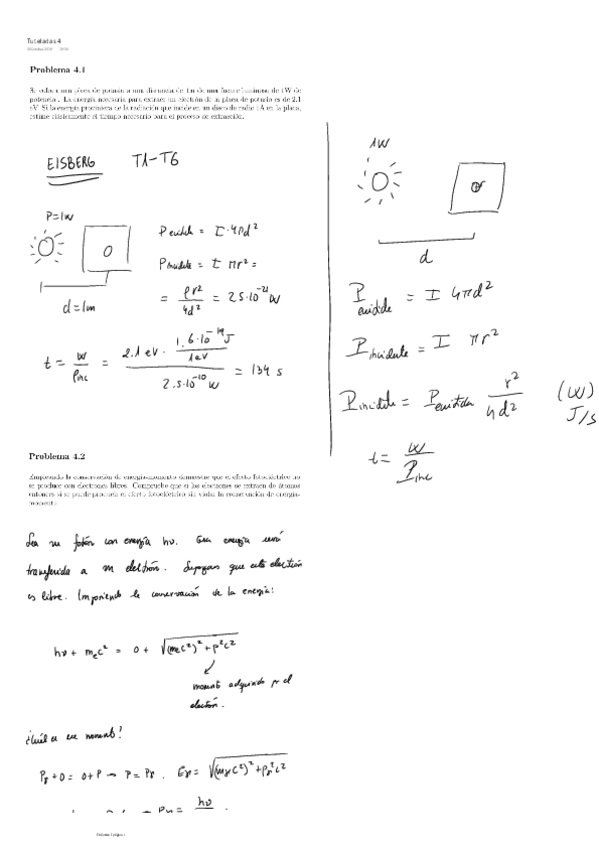 Tuteladas 4
Problema 4.1
Se coloca una placa de potasio a una distancia de 1m de una fuente luminosa de 1W de
potencia. La energía necesaria para extraer un electrón de la placa de potasio es de 2.1
eV. Si la energía proviniera de la radiación que incide en un disco de radio 1A en la placa,
estime clásicamente el tiempo necesario para el proceso de extracción.
EISBERG T1-T6
P=1W
d=1m
P emitida = I·4πd²
P incidente = I πr² =
= Pr²/4d² = 2.5·10⁻²¹ W
t = W/Pinc = (2.1 eV · 1.6·10⁻¹⁹J/1eV)/(2.5·10⁻¹⁰ W) = 134 s
1W
d
P emitida = I 4πd²
P incidente = I πr²
P incidente = P emitida r²/4d² (W)
J/s
t = W/Pinc
Problema 4.2
Empleando la conservación de energía-momento demuestre que el efecto fotoeléctrico no
se produce con electrones libres. Compruebe que si los electrones se extraen de átomos
entonces sí se puede producir el efecto fotoeléctrico sin violar la conservación de energía-
momento.
Sea un fotón con energía hν. Esa energía será
transferida a un electrón. Supongamos que este electrón
es libre. Imponiendo la conservación de la energía:
hν + mₑc² = 0 + √((mₑc²)² + p²c²)
momento adquirido por el
electrón.
¿Cuál es ese momento?
Pγ + 0 = 0 + P → P = Pγ. Eγ = √((mγc²)² + pγ²c²